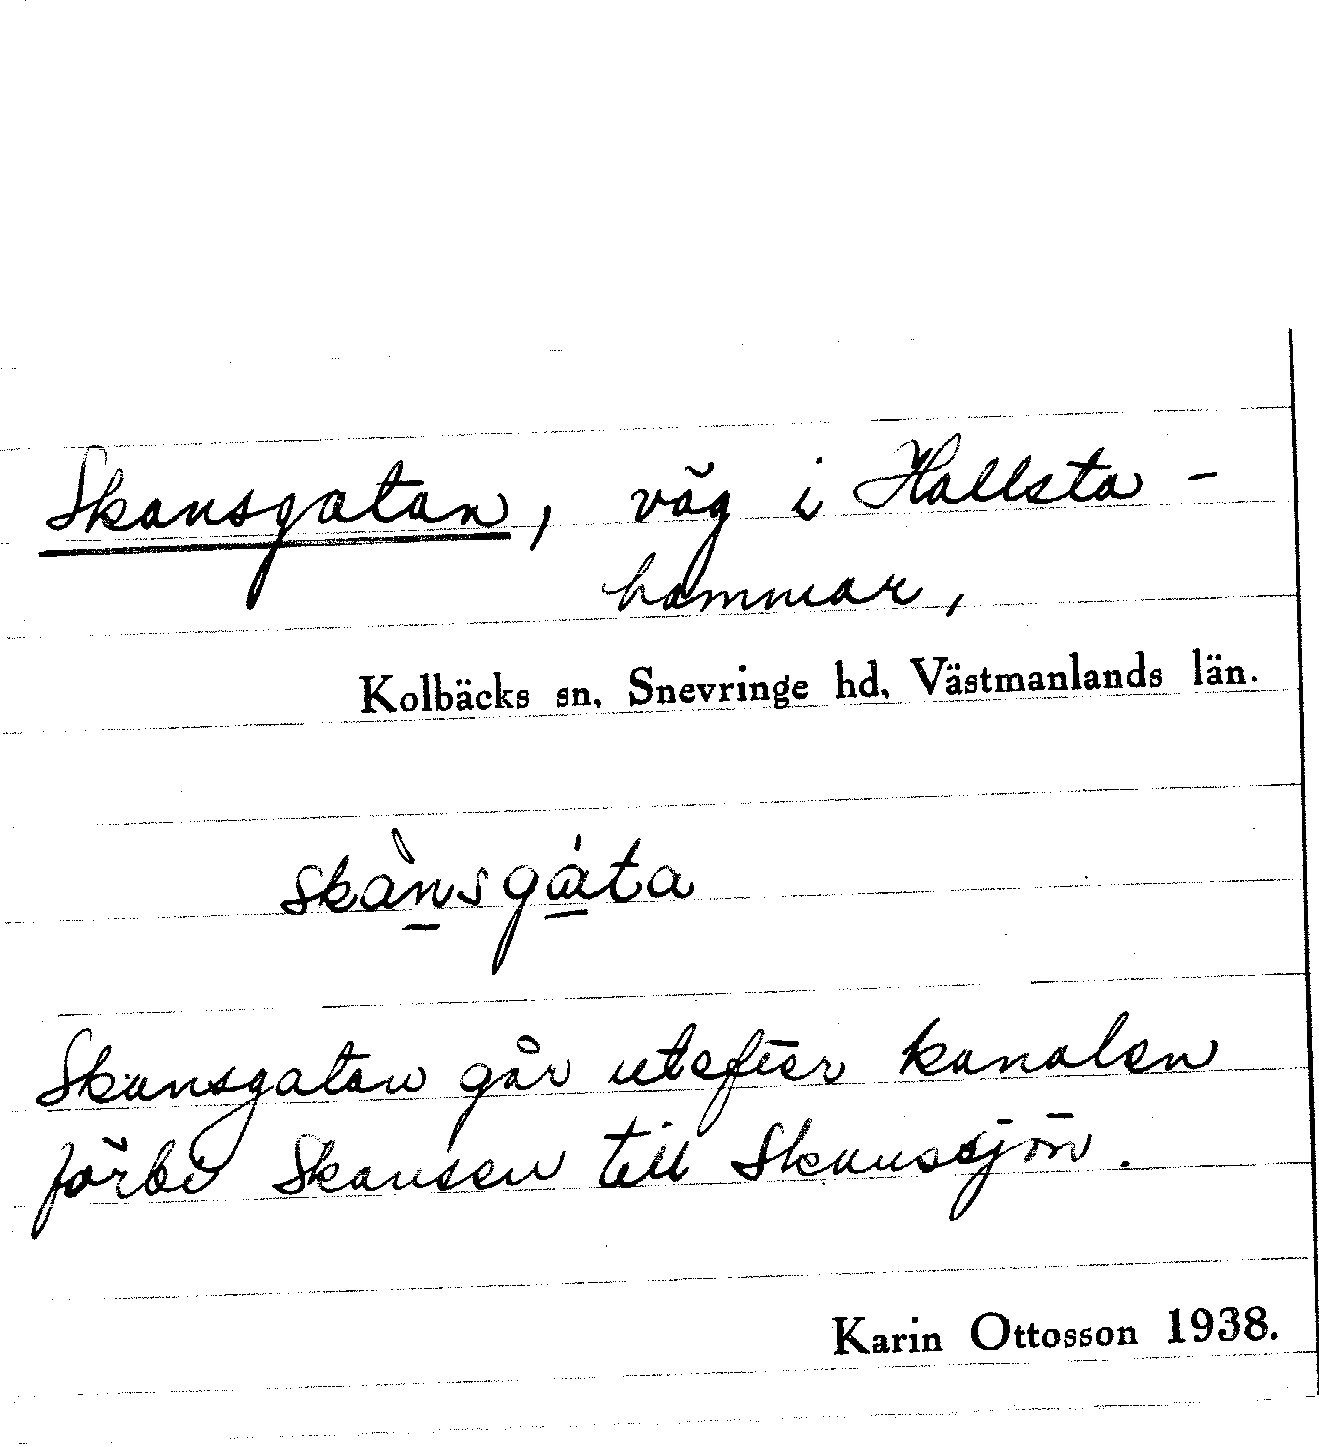 Skansgatan, väg i Hallsta-
hammar,
Kolbäcks sn, Snevringe hd, Västmanlands län.
skànsgáta
Skansgatan går utefter kanalen
förbi Skansen till Skanssjön.
Karin Ottosson 1938.